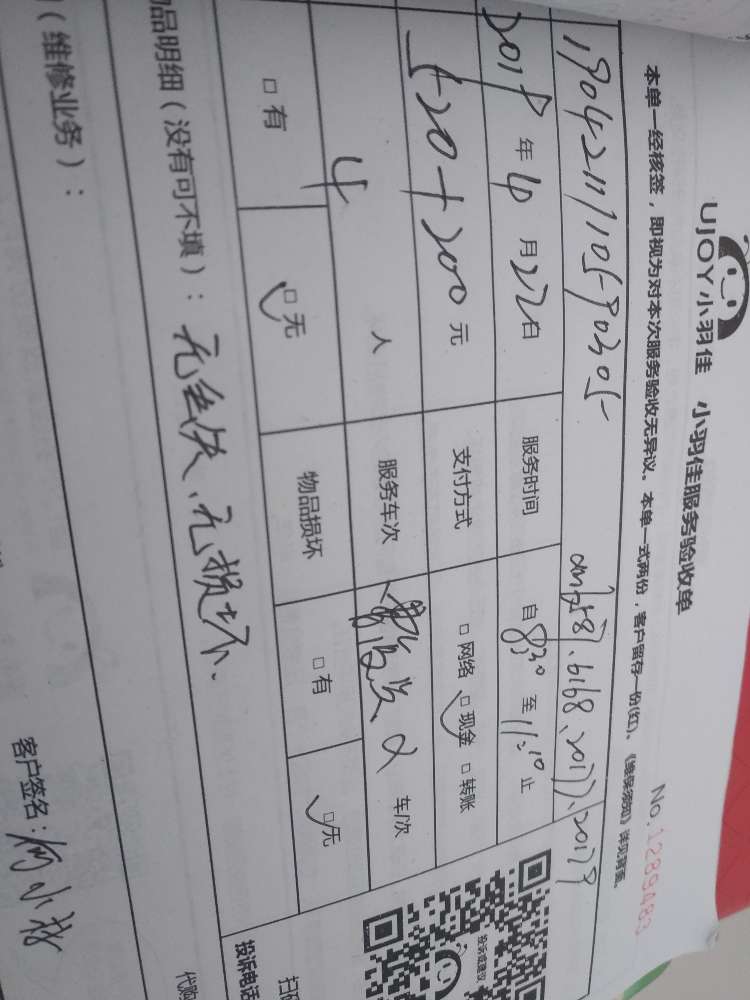 UJOY小羽佳 小羽佳服务验收单
No.1289483
本单一经核签，即视为对本次服务验收无异议。本单一式两份，客户留存一份(红)。《维保须知》详见背面。
190421110590305
2019年4月22日 服务时间 自8:30至11:10止
520+200元 支付方式 □网络 ☑现金 □转账
4人 服务车次 2车/次
□有 ☑无 物品损坏 □有 ☑无
品明细（没有可不填）：无丢失、无损坏、
（维修业务）：
客户签名：
投诉或建议
扫码
投诉电话
代购